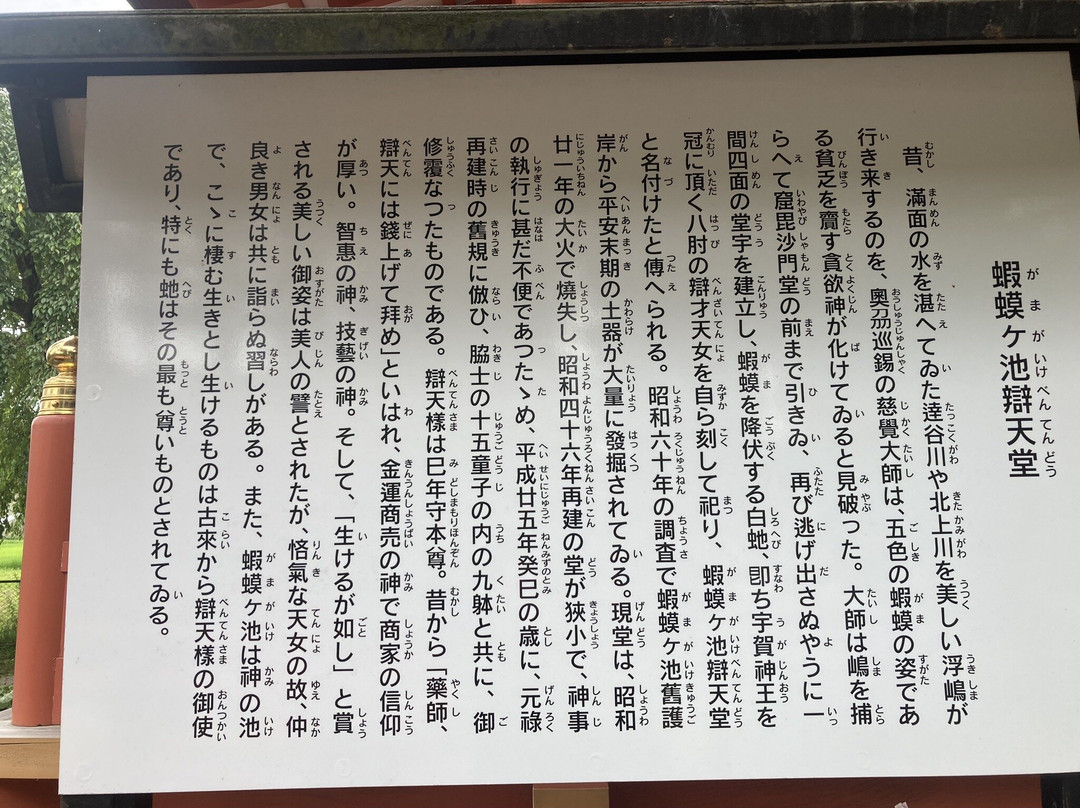 蝦蟆ヶ池辯天堂
昔、滿面の水を湛へてゐた達谷川や北上川を美しい浮嶋が
行き来するのを、奥刕巡錫の慈覺大師は、五色の蝦蟆の姿であ
る貧乏を齎す貪欲神が化けてゐると見破った。大師は嶋を捕
らへて窟毘沙門堂の前まで引きゐ、再び逃げ出さぬやうに一
間四面の堂宇を建立し、蝦蟆を降伏する白虵、卽ち宇賀神王を
冠に頂く八肘の辯才天女を自ら刻して祀り、蝦蟆ヶ池辯天堂
と名付けたと傳へられる。昭和六十年の調査で蝦蟆ヶ池舊護
岸から平安末期の土器が大量に發掘されてゐる。現堂は、昭和
廿一年の大火で燒失し、昭和四十六年再建の堂が狹小で、神事
の執行に甚だ不便であつたゝめ、平成廿五年癸巳の歳に、元祿
再建時の舊規に倣ひ、脇士の十五童子の内の九躰と共に、御
修覆なつたものである。辯天樣は巳年守本尊。昔から「藥師、
辯天には錢上げて拜め」といはれ、金運商売の神で商家の信仰
が厚い。智惠の神、技藝の神。そして、「生けるが如し」と賞
される美しい御姿は美人の譬とされたが、悋氣な天女の故、仲
良き男女は共に詣らぬ習しがある。また、蝦蟆ヶ池は神の池
で、こゝに棲む生きとし生けるものは古來から辯天樣の御使
であり、特にも虵はその最も尊いものとされてゐる。